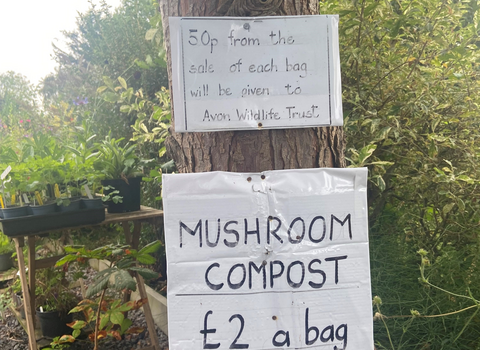 50p from the
sale of each bag
will be given to
Avon Wildlife Trust
MUSHROOM
COMPOST
£2 a bag